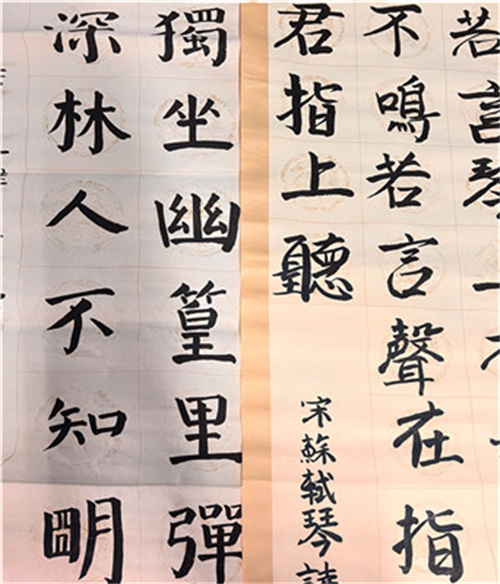 若言琴
不鳴若言聲在指
君指上聽
宋蘇軾琴詩
獨坐幽篁里彈
深林人不知明